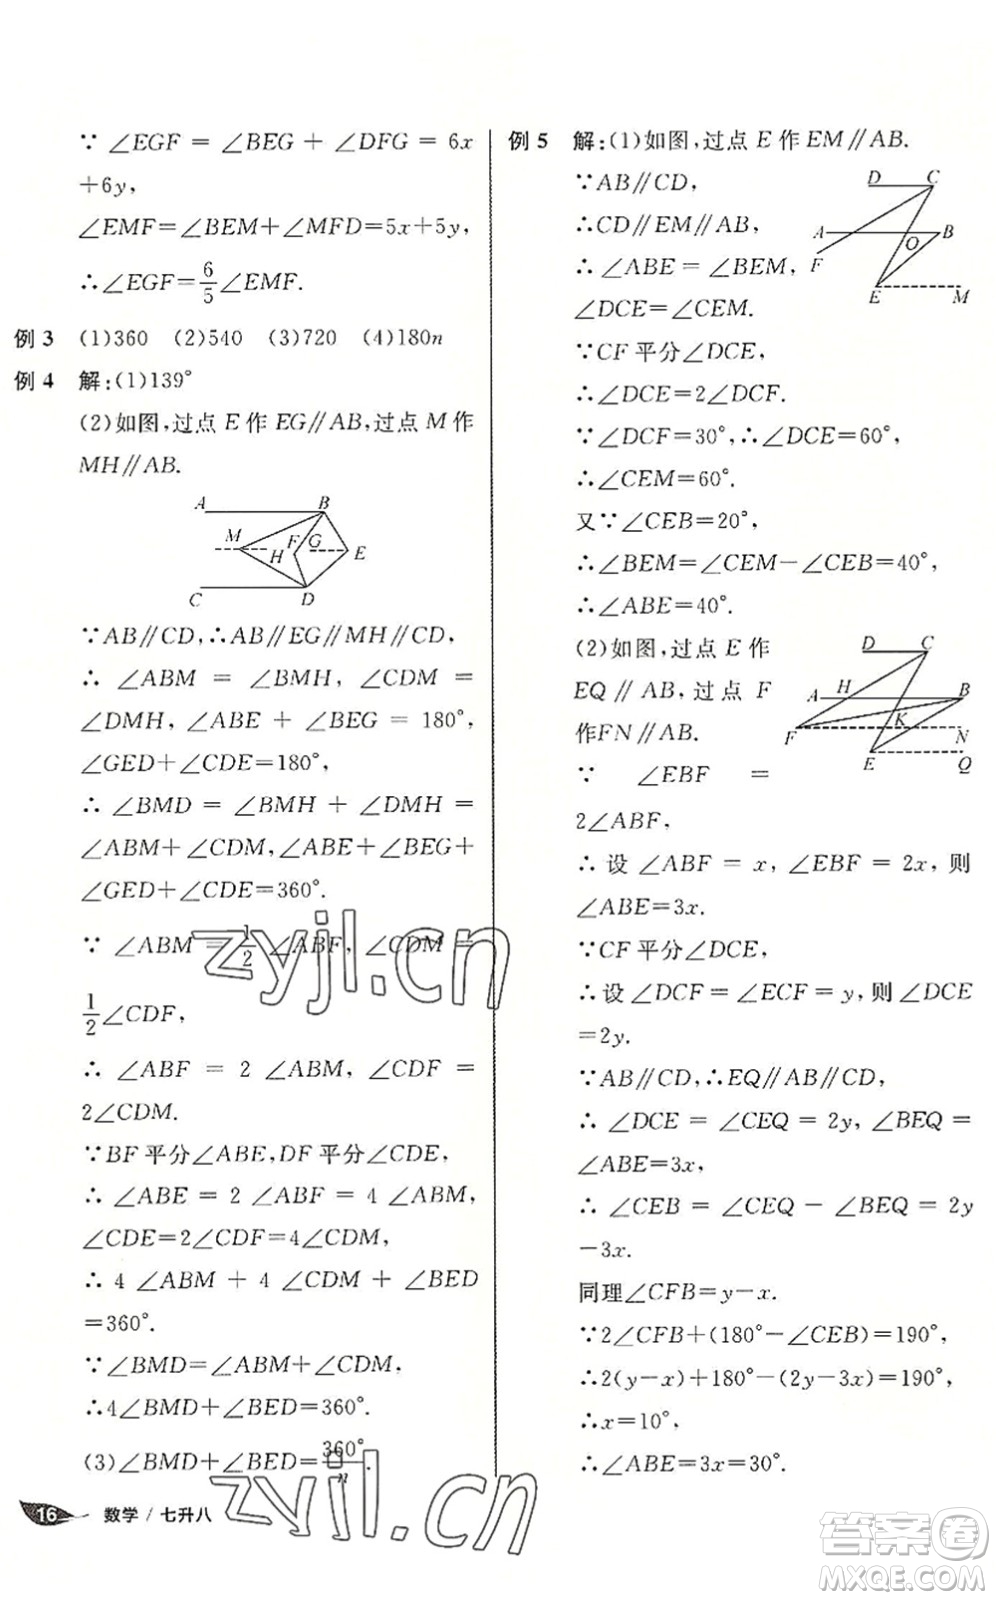 ∵ ∠EGF = ∠BEG + ∠DFG = 6x
+6y,
∠EMF=∠BEM+∠MFD=5x+5y,
∴∠EGF=6/5∠EMF.
例 3 (1)360 (2)540 (3)720 (4)180n
例 4 解:(1)139°
(2)如图,过点 E 作 EG∥AB,过点 M 作
MH∥AB.
A B
M H F G E
C D
∵AB∥CD,∴AB∥EG∥MH∥CD,
∴ ∠ABM = ∠BMH, ∠CDM =
∠DMH, ∠ABE + ∠BEG = 180°,
∠GED+∠CDE=180°,
∴ ∠BMD = ∠BMH + ∠DMH =
∠ABM+∠CDM,∠ABE+∠BEG+
∠GED+∠CDE=360°.
∵ ∠ABM = 1/2 ∠ABF, ∠CDM =
1/2∠CDF,
∴ ∠ABF = 2 ∠ABM, ∠CDF =
2∠CDM.
∵BF 平分∠ABE,DF 平分∠CDE,
∴ ∠ABE = 2 ∠ABF = 4 ∠ABM,
∠CDE=2∠CDF=4∠CDM,
∴ 4 ∠ABM + 4 ∠CDM + ∠BED
=360°.
∵∠BMD=∠ABM+∠CDM,
∴4∠BMD+∠BED=360°.
(3)∠BMD+∠BED=360°/n.
16 数学 / 七升八
例 5 解:(1)如图,过点 E 作 EM∥AB.
∵AB∥CD,
∴CD∥EM∥AB,
∴ ∠ABE = ∠BEM,
∠DCE=∠CEM.
D C
A O B
F
E M
∵CF 平分∠DCE,
∴∠DCE=2∠DCF.
∵∠DCF=30°,∴∠DCE=60°,
∴∠CEM=60°.
又∵∠CEB=20°,
∴∠BEM=∠CEM−∠CEB=40°,
∴∠ABE=40°.
(2)如图,过点 E 作
EQ ∥ AB, 过点 F
作FN∥AB.
D C
A H B
K
F N
E Q
∵ ∠EBF =
2∠ABF,
∴ 设 ∠ABF = x, ∠EBF = 2x, 则
∠ABE=3x.
∵CF 平分∠DCE,
∴设 ∠DCF = ∠ECF = y, 则 ∠DCE
=2y.
∵AB∥CD,∴EQ∥AB∥CD,
∴ ∠DCE = ∠CEQ = 2y, ∠BEQ =
∠ABE=3x,
∴ ∠CEB = ∠CEQ − ∠BEQ = 2y
−3x.
同理∠CFB=y−x.
∵2∠CFB+(180°−∠CEB)=190°,
∴2(y−x)+180°−(2y−3x)=190°,
∴x=10°,
∴∠ABE=3x=30°.
zyjl.cn
zyjl.cn
答案卷
MXQE.COM